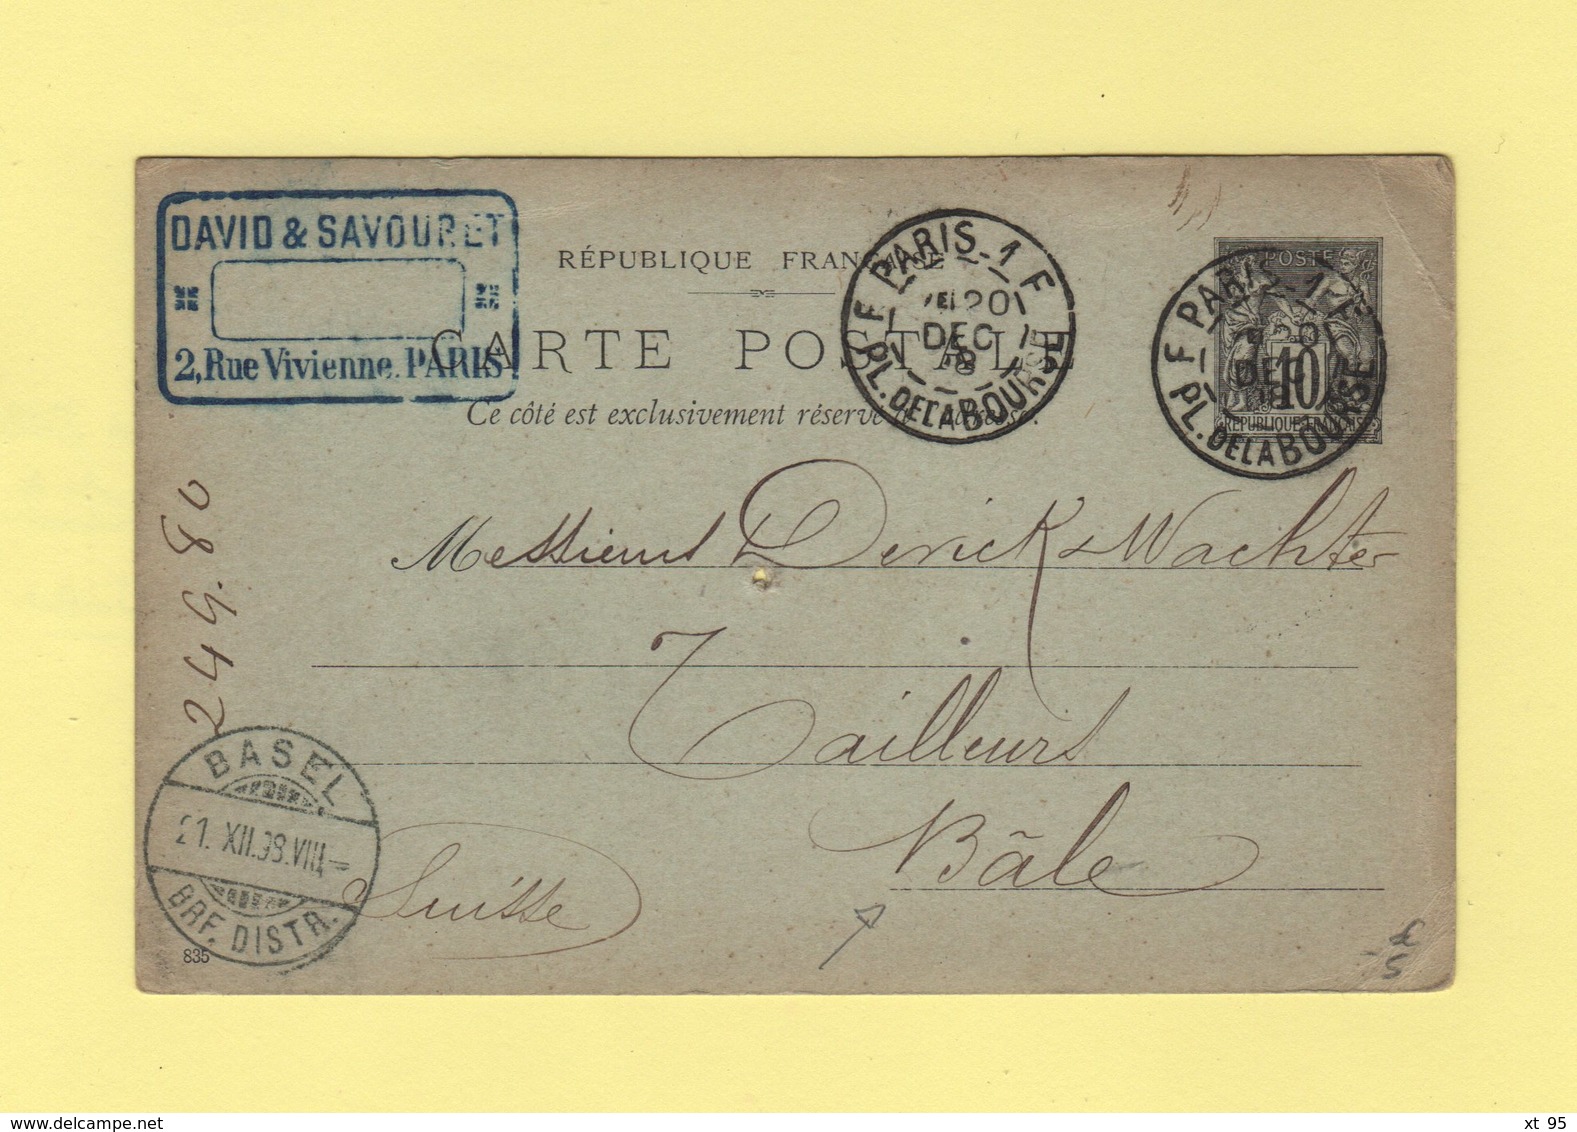 DAVID & SAVOURET
2, Rue Vivienne. PARIS
RÉPUBLIQUE FRANÇAISE
CARTE POSTALE
Ce côté est exclusivement réservé à l'adresse.
PARIS-1
20
DEC
98
PL. DE LA BOURSE
POSTE
10
RÉPUBLIQUE FRANÇAISE
PARIS-1
DEC
PL. DE LA BOURSE
Messieurs Derick & Wachter
Tailleurs
Bâle
Suisse
249.80
BASEL
21.XII.98.VIII
BRF. DISTR.
835
delcampe.net
xt 95